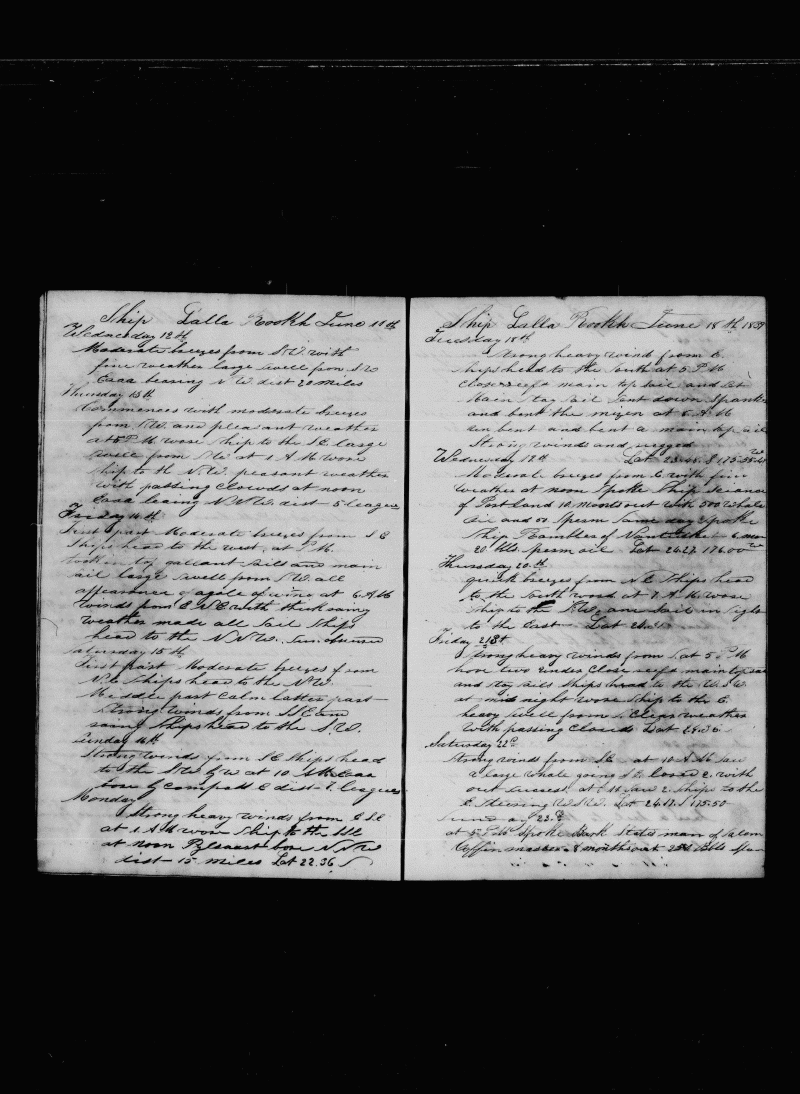 Ship Lalla Rookh June 11th
Wednesday 12th
Moderate breezes from S.W. with
fine weather large swell from S.W
Eaaa bearing N W dist 20 miles
Thursday 13th
Commences with moderate breezes
from S.W. and pleasant weather
at 5 P M wore ship to the S.E. large
swell from S W at 1 A M wore
ship to the N.W. peasant weather
with passing clowds at noon
Eaaa bearing N N W. dist 5 leagues
Friday 14th
First part Moderate breezes from S E
Ships head to the west, at P.M.
took in top gallant sails and main
sail large swell from S.W. all
appearance of a gale of wind at 6 A M
winds from E.N.E with thick rainy
weather made all sail Ships
head to the N N W. Sun obscured
aturday 15th
First part Moderate breezes from
N.E Ships head to the N W.
Middle part Calm latter part
strong winds from S S E and
rainy Ships head to the S.W.
Sunday 16th
Strong winds from S E Ships head
to the S W by W at 10 A M Eaaa
bore by compass E dist 7 leagues
Monday
Strong heavy winds from E S E
at 1 A M wore ship to the
at noon Pylsaart bore N N W
dist 15 miles Lat 22.36 S
Ship Lalla Rookh June 18th 1839
Tuesday 18th
Strong heavy wind from E.
ships head to the South at 5 P M
close reef main top sail and set
Main stay sail sent down spanker
and bent the mizen at 6 A M
un bent and bent a main top sail
Strong winds and rugged
Wednesday 19th Lat 23.48. S 175.38.45
Moderate breezes from E with fine
weather at noon spoke ship Science
of Portland 10 months out with 500 whale
oil and 50 sperm same day spoke
Ship Rambler of Nantucket 6 mon
20 bbls sperm oil Lat 24.27. 176.00
Thursday 20th
quick breezes from N E ships head
to the South ward at 7 A M wore
ship to the N.W. one sail in sight
to the East Lat 24
Friday 21st
Strong heavy winds from S at 5 P M
hove two under close reef main top sai
and stay sails ships head to the W.S.W
at mid night wore ship to the E.
heavy swell from S. Clear weather
with passing Clouds Lat 24
Saturday 22d
strong winds from S.E. at 10 A M saw
a large whale going S E lowed 2. with
out success at saw 2 ships to the
E. steering W.S.W. Lat 24.17. S 175.50
Sunday 23d
at 5 P M spoke Bark States man of Salem
Coffin master 8 months out 250 bbls sperm